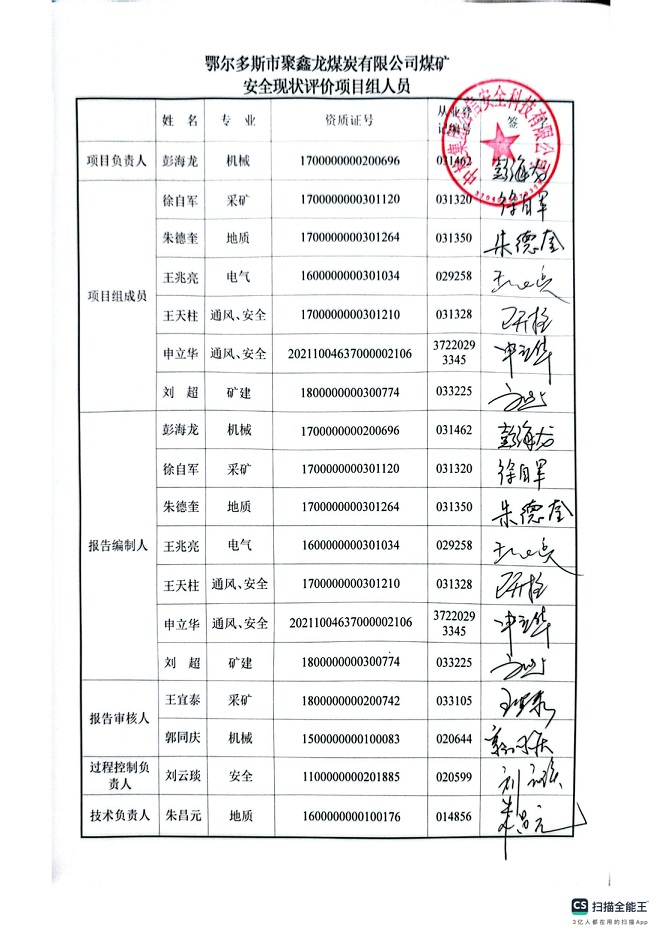 鄂尔多斯市聚鑫龙煤炭有限公司煤矿
安全现状评价项目组人员
姓 名 专 业 资质证号 从业登记编号 签
项目负责人 彭海龙 机械 1700000000200696 031462 彭海龙
项目组成员 徐自军 采矿 1700000000301120 031320 徐自军
朱德奎 地质 1700000000301264 031350 朱德奎
王兆亮 电气 1600000000301034 029258
王天柱 通风、安全 1700000000301210 031328
申立华 通风、安全 20211004637000002106 3722029
3345 申立华
刘 超 矿建 1800000000300774 033225
报告编制人 彭海龙 机械 1700000000200696 031462 彭海龙
徐自军 采矿 1700000000301120 031320 徐自军
朱德奎 地质 1700000000301264 031350 朱德奎
王兆亮 电气 1600000000301034 029258
王天柱 通风、安全 1700000000301210 031328
申立华 通风、安全 20211004637000002106 3722029
3345 申立华
刘 超 矿建 1800000000300774 033225
报告审核人 王宜泰 采矿 1800000000200742 033105
郭同庆 机械 1500000000100083 020644
过程控制负
责人 刘云琰 安全 1100000000201885 020599
技术负责人 朱昌元 地质 1600000000100176 014856 朱昌元
CS 扫描全能王
3亿人都在用的扫描App